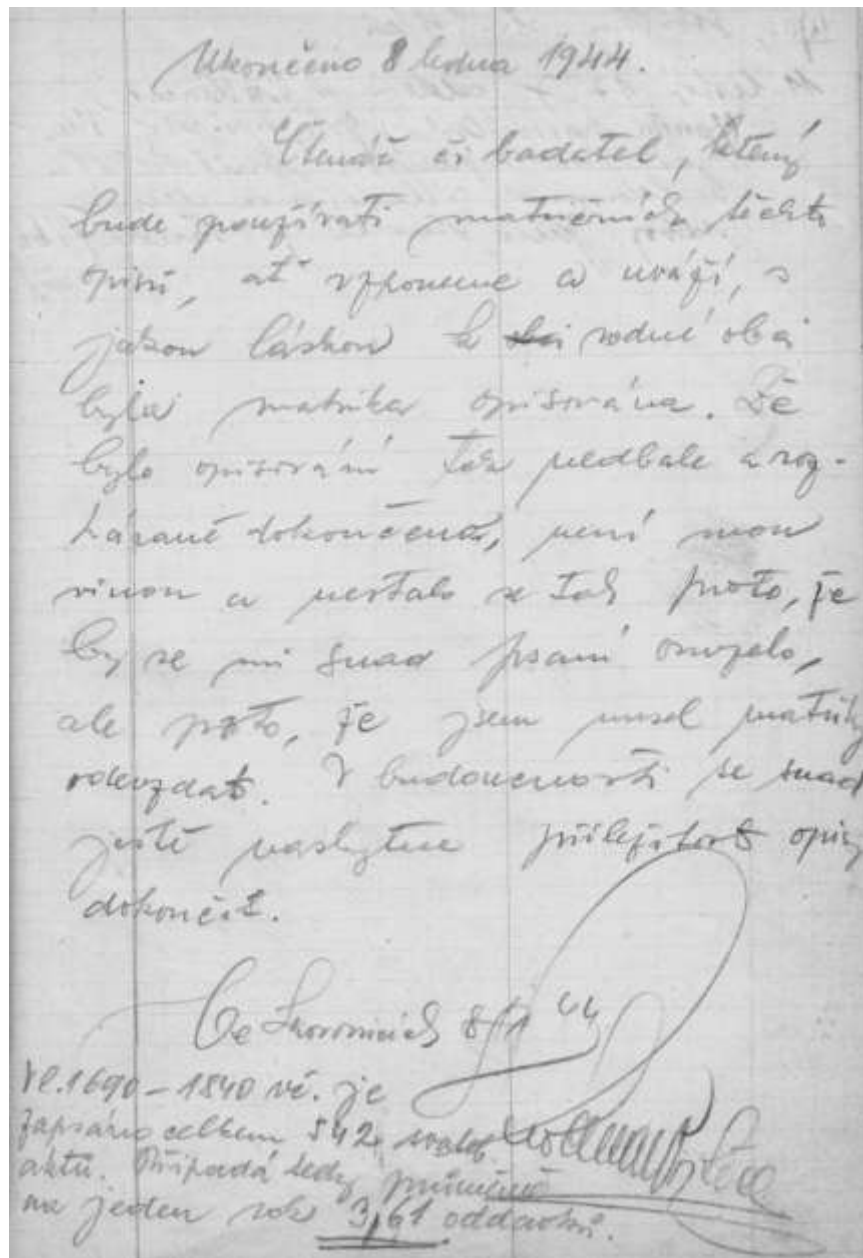 Ukončeno 8 ledna 1944.
Čtenář či badatel, který
bude používati matričních těchto
opisů, ať vzpomene a uváží, s
jakou láskou k rodné obci
byla matrika opisována. Že
bylo opisování tak nedbale a roz-
házaně dokončeno, není mou
vinou a nestalo se tak proto, že
by se mi snad psaní omrzelo,
ale proto, že jsem musel matriky
odevzdat. V budoucnosti se snad
ještě naskytne příležitost opisy
dokončit.
Ve Skoronicích 8/1 44
Vl. 1690 – 1840 vč. je
zapsáno celkem 542
aktů. Připadá tedy průměrně
na jeden rok 3,61 oddavků.